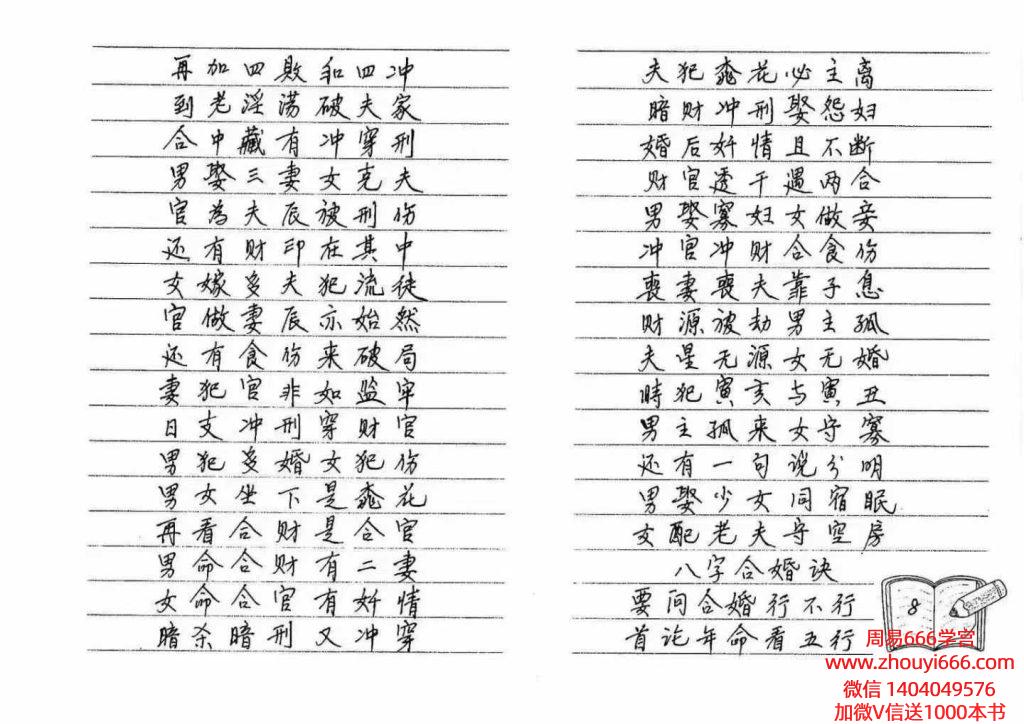 再加四败和四冲
到老淫荡破夫家
合中藏有冲穿刑
男娶三妻女克夫
官為夫辰被刑伤
还有财印在其中
女嫁多夫犯流徒
官做妻辰亦始然
还有食伤来破局
妻犯官非如监牢
日支冲刑穿财官
男犯多婚女犯伤
男女坐下是桃花
再看合财是合官
男命合财有二妻
女命合官有奸情
暗杀暗刑又冲穿
夫犯桃花必主离
暗财冲刑娶怨妇
婚后奸情且不断
财官透干遇两合
男娶寡妇女做妾
冲官冲财合食伤
丧妻丧夫靠子息
财源被劫男主孤
夫星无源女无婚
時犯寅亥与寅丑
男主孤来女守寡
还有一句说分明
男娶少女同宿眠
女配老夫守空房
八字合婚诀
要问合婚行不行
首论年命看五行
8
周易666学宫
www.zhouyi666.com
微信 1404049576
加微V信送1000本书